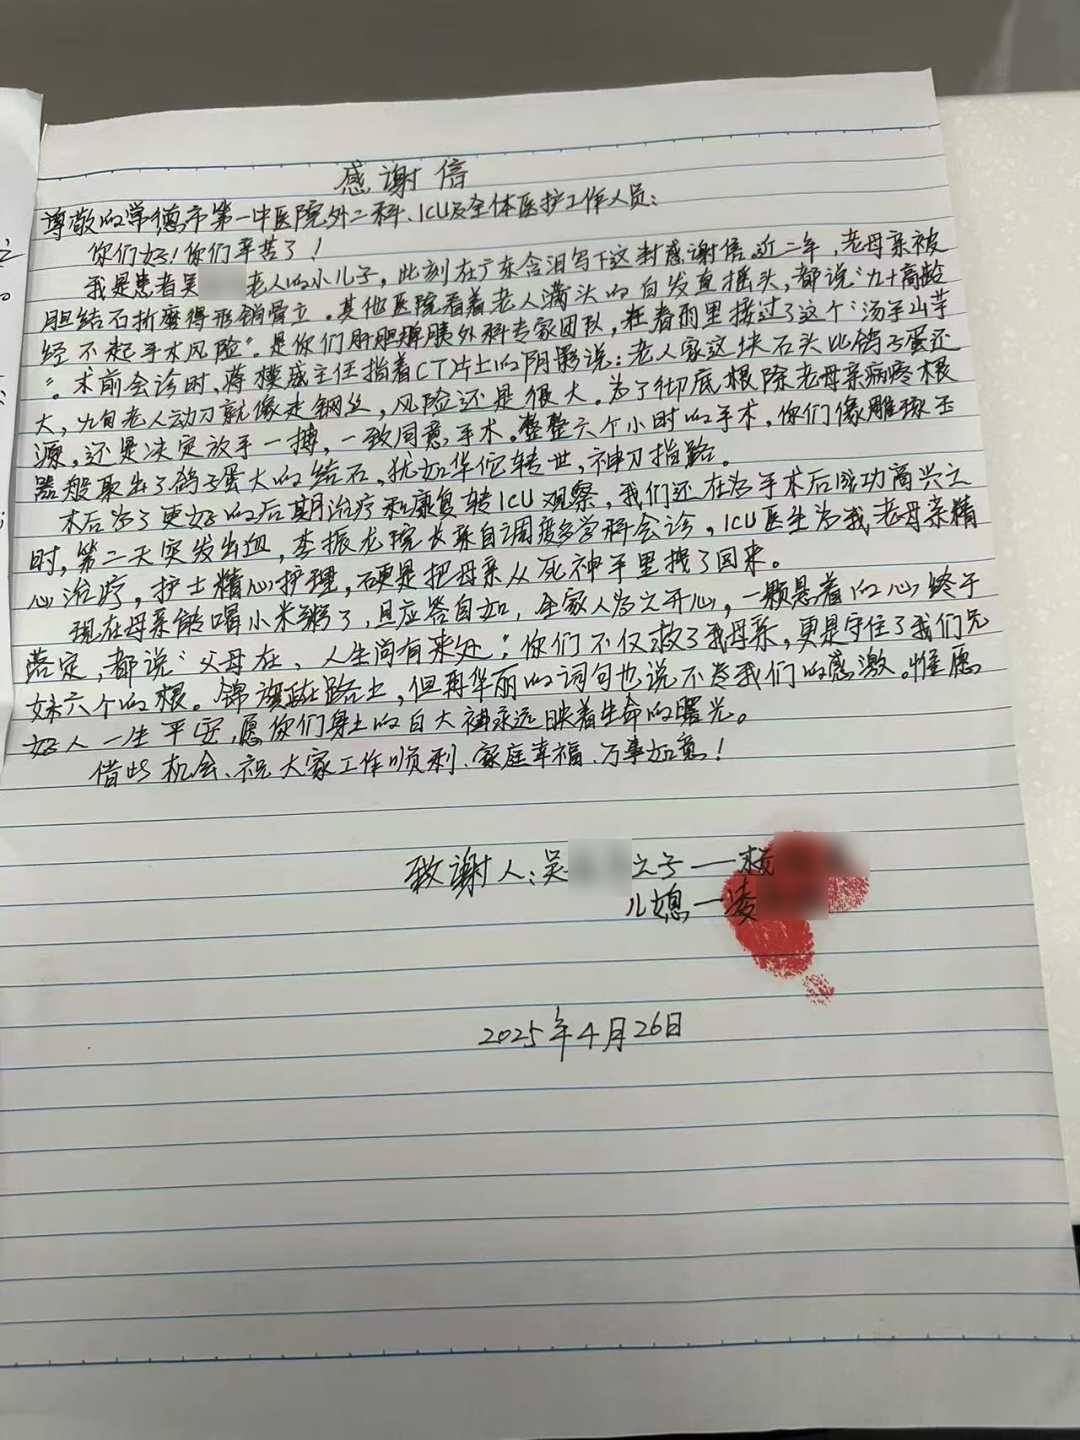 感谢信
尊敬的常德市第一中医院外二科、ICU及全体医护工作人员：
你们好！你们辛苦了！
我是患者吴 老人的小儿子，此刻在广东含泪写下这封感谢信。近二年，老母亲被
胆结石折磨得形销骨立。其他医院看着老人满头的白发直摇头，都说“九十高龄
经不起手术风险”。是你们肝胆胰外科专家团队，在春雨里接过了这个“汤手山芋
”。术前会诊时，蒋模威主任指着CT片上的阴影说：老人家这块石头比鸽子蛋还
大，九旬老人动刀就像走钢丝，风险还是很大。为了彻底根除老母亲病疼根
源，还是决定放手一搏，一致同意手术。整整六个小时的手术，你们像雕琢玉
器般取出了鸽子蛋大的结石，犹如华佗转世，神刀指路。
术后为了更好的后期治疗和康复转ICU观察，我们还在为手术后成功高兴之
时，第二天突发出血，李振龙院长亲自调度多学科会诊。ICU医生为我老母亲精
心治疗，护士精心护理，硬是把母亲从死神手里拽了回来。
现在母亲能喝小米粥了，且应答自如，全家人为之开心，一颗悬着的心终于
落定，都说“父母在，人生尚有来处”；你们不仅救了我母亲，更是守住了我们兄
妹六个的根。锦旗在路上，但再华丽的词句也说不尽我们的感激。惟愿
好人一生平安，愿你们身上的白大褂永远映着生命的曙光。
借此机会、祝大家工作顺利、家庭幸福、万事如意！
致谢人：吴 之子——
儿媳—凌
2025年4月26日